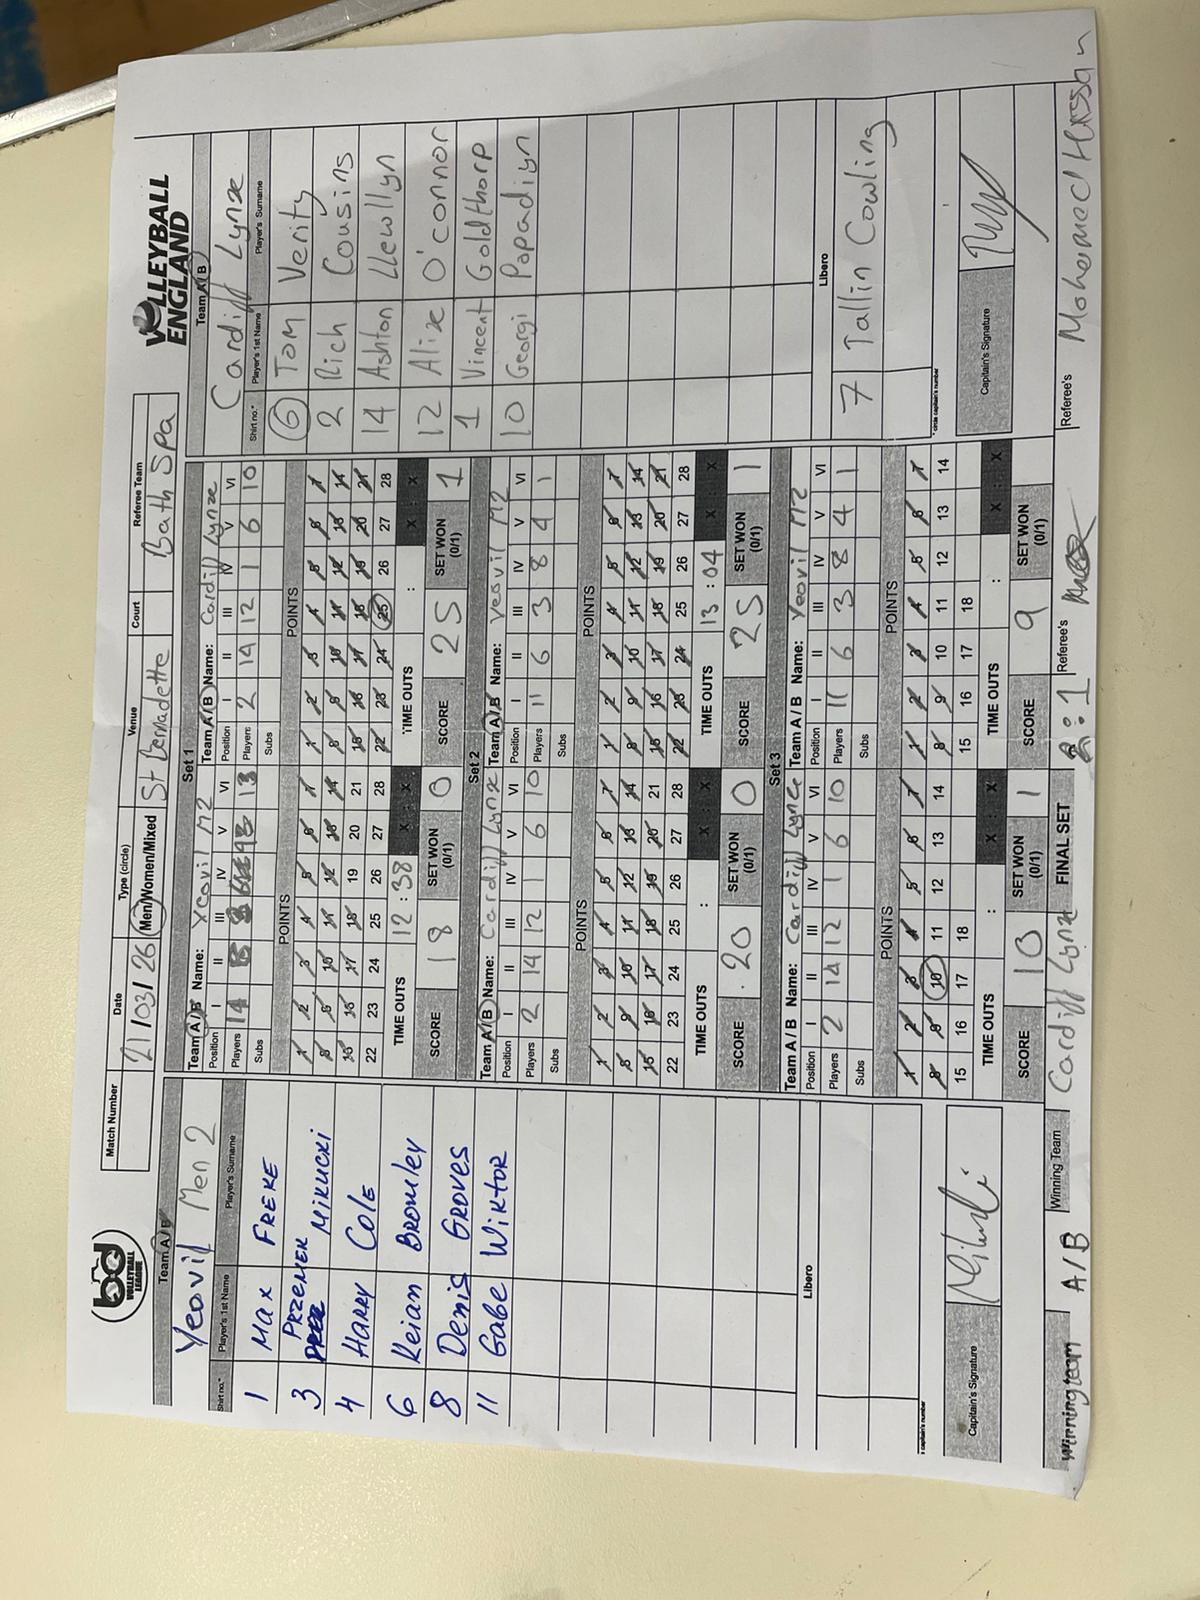 bd VOLLEYBALL LEAGUE
Match Number Date Type (circle) Venue Court Referee Team
21/03/26 Men/Women/Mixed St Bernadette Bath Spa
VOLLEYBALL ENGLAND
Team A/B
Yeovil Men 2
Shirt no.* Player's 1st Name Player's Surname
1 Max FREKE
3 PRZEMEK MIKUCKI
4 HARRY Cole
6 Keian BROMLEY
8 Denis GROVES
11 Gabe WIKTOR
Libero
captain's number
Captain's Signature
Set 1
Team A/B Name: Yeovil M2
Position I II III IV V VI
Players 14
Subs
POINTS
1 2 3 4 5 6 7
8 9 10 11 12 13 14
15 16 17 18 19 20 21
22 23 24 25 26 27 28
TIME OUTS 12:38 X : X
SCORE 18 SET WON (0/1) 0
Team A/B Name: Cardiff Lynx
Position I II III IV V VI
Players 2 14 12 1 6 10
Subs
POINTS
1 2 3 4 5 6 7
8 9 10 11 12 13 14
15 16 17 18 19 20 21
22 23 24 25 26 27 28
TIME OUTS : X : X
SCORE 25 SET WON (0/1) 1
Set 2
Team A/B Name: Cardiff Lynx
Position I II III IV V VI
Players 2 14 12 1 6 10
Subs
POINTS
1 2 3 4 5 6 7
8 9 10 11 12 13 14
15 16 17 18 19 20 21
22 23 24 25 26 27 28
TIME OUTS : X : X
SCORE 20 SET WON (0/1) 0
Team A/B Name: Yeovil M2
Position I II III IV V VI
Players 11 6 3 8 4 1
Subs
POINTS
1 2 3 4 5 6 7
8 9 10 11 12 13 14
15 16 17 18 19 20 21
22 23 24 25 26 27 28
TIME OUTS 13:04 X : X
SCORE 25 SET WON (0/1) 1
Set 3
Team A/B Name: Cardiff Lynx
Position I II III IV V VI
Players 2 14 12 1 6 10
Subs
POINTS
1 2 3 4 5 6 7
8 9 10 11 12 13 14
15 16 17 18
TIME OUTS : X : X
SCORE 10 SET WON (0/1) 1
Team A/B Name: Yeovil M2
Position I II III IV V VI
Players 11 6 3 8 4 1
Subs
POINTS
1 2 3 4 5 6 7
8 9 10 11 12 13 14
15 16 17 18
TIME OUTS : X : X
SCORE 9 SET WON (0/1)
Team A/B
Cardiff Lynx
Shirt no.* Player's 1st Name Player's Surname
6 Tom Verity
2 Rich Cousins
14 Ashton Llewllyn
12 Alix O'connor
1 Vincent Goldthorp
10 Georgi Papadiyn
Libero
7 Tallin Cowling
* circle captain's number
Captain's Signature
Winning team A/B Winning Team Cardiff Lynx FINAL SET 2:1 Referee's Referee's Mohamed Hassan